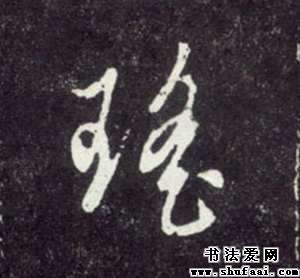 瑤
书法爱网
www.shufaai.com